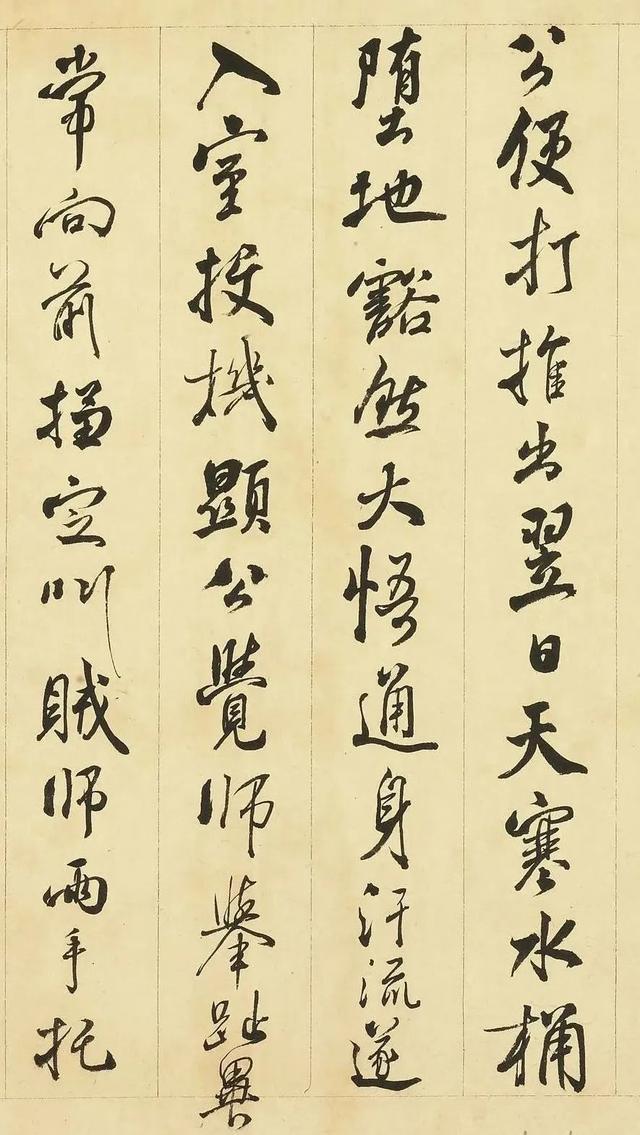 公便打推出翌日天寒水桶
堕地豁然大悟通身汗流遂
入室投機顯公覺師舉趾異
常向前搊定叫賊師兩手托